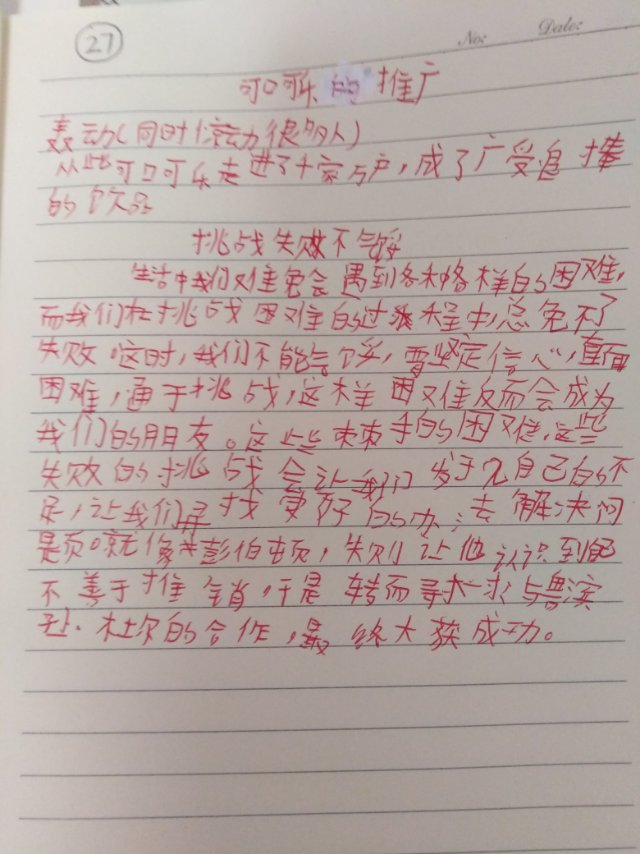 27
No:
Date:
可口可乐的推广
轰动(同时惊动很多人)
从此可口可乐走进了千家万户,成了广受追捧
的饮品
挑战失败不气馁
生活中我们难免会遇到各种各样的困难,
而我们在挑战困难的过程中,总免不了
失败。这时,我们不能气馁,要坚定信心,直面
困难,勇于挑战,这样困难反而会成为
我们的朋友。这些棘手的困难,这些
失败的挑战会让我们发现自己的不
足,让我们寻找更好的办法去解决问
题。就像彭伯顿,失败让他认识到自己
不善于推销,于是转而寻求与鲁滨
孙·杜尔的合作,最终大获成功。